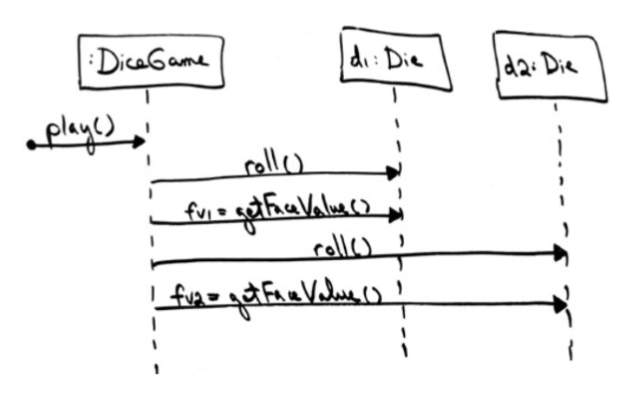 :DiceGame
d1:Die
d2:Die
play()
roll()
fv1=getFaceValue()
roll()
fv2=getFaceValue()